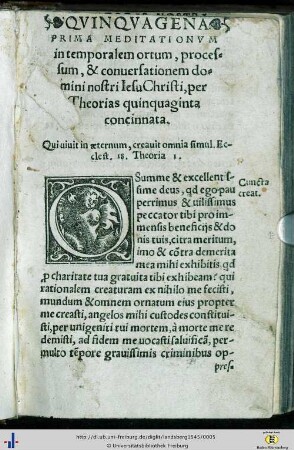 QVINQVAGENA
PRIMA MEDITATIONVM
in temporalem ortum, proces-
sum, & conuersationem do-
mini nostri Iesu Christi, per
Theorias quinquaginta
concinnata.
Qui uiuit in æternum, creauit omnia simul. Ec-
clest. 18. Theoria 1.
O Summe & excellentis
sime deus, qd ego pau
perrimus & uilissimus
peccator tibi pro im-
mensis beneficijs & do
nis tuis, citra meritum,
imo & cõtra demerita
mea mihi exhibitis. qd
ꝓ charitate tua gratuita tibi exhibeam? qui
rationalem creaturam ex nihilo me fecisti,
mundum & omnem ornatum eius propter
me creasti, angelos mihi custodes constitui-
sti, per unigeniti tui mortem, à morte me re
demisti, ad fidem me uocasti saluificã, per-
multo tẽpore grauissimis criminibus op-
press
Cuncta
creat.
http://dl.ub.uni-freiburg.de/diglit/landsberg1545/0005
© Universitätsbibliothek Freiburg